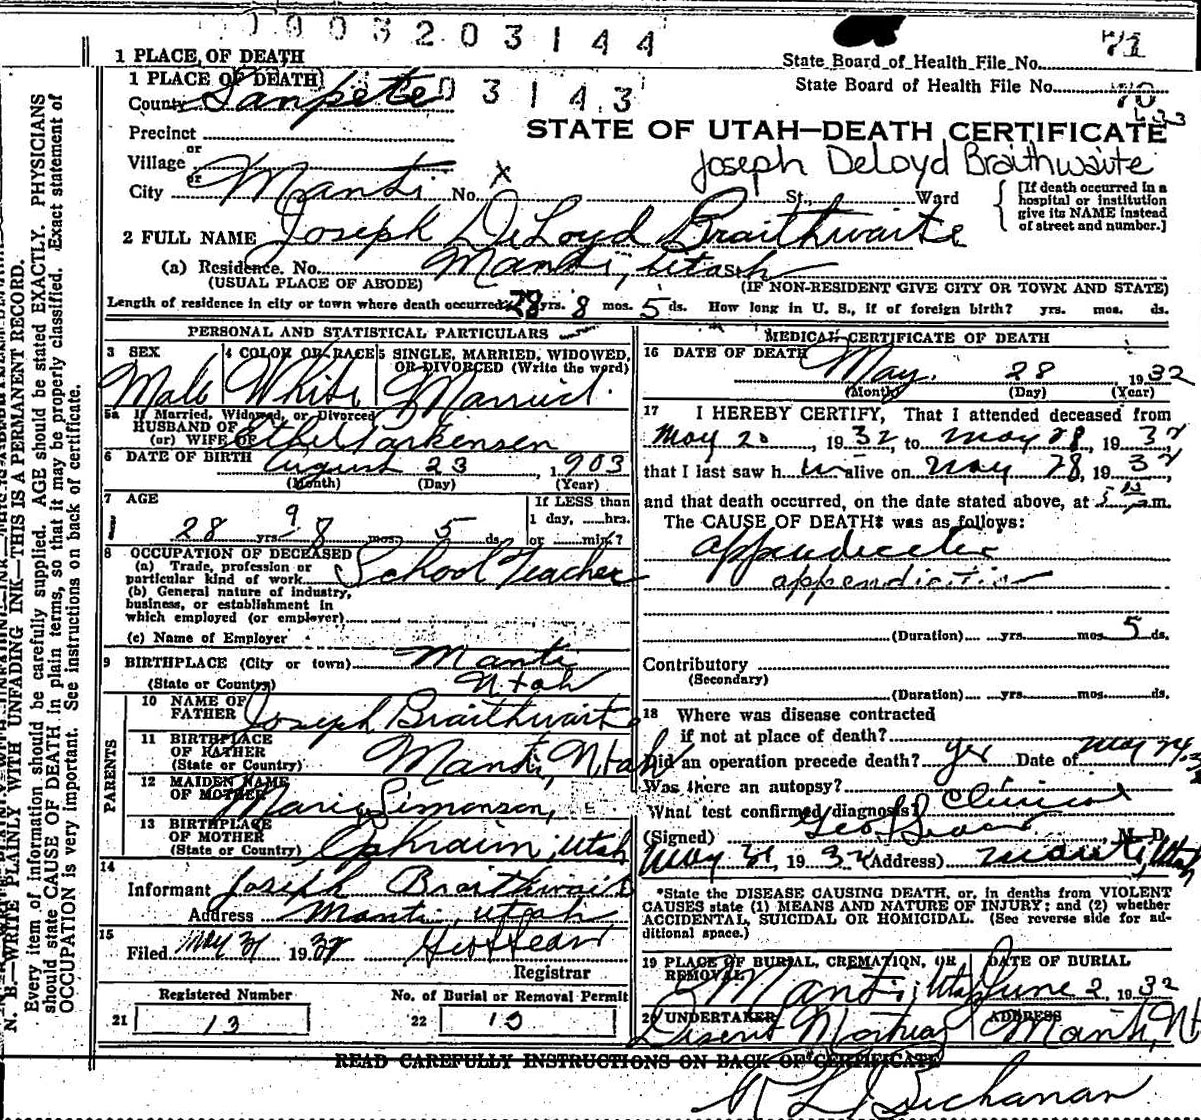 1903203144
71
1 PLACE OF DEATH
State Board of Health File No.
1 PLACE OF DEATH
State Board of Health File No.
70
County Sanpete
03143
Precinct
or
STATE OF UTAH—DEATH CERTIFICATE
Village
or
Joseph DeLoyd Braithwaite
City Manti No. X St., Ward
[If death occurred in a hospital or institution give its NAME instead of street and number.]
2 FULL NAME Joseph DeLoyd Braithwaite
(a) Residence. No. Manti, Utah St.
(USUAL PLACE OF ABODE) (IF NON-RESIDENT GIVE CITY OR TOWN AND STATE)
Length of residence in city or town where death occurred 28 yrs. 8 mos. 5 ds. How long in U. S., if of foreign birth? yrs. mos. ds.
PERSONAL AND STATISTICAL PARTICULARS
3 SEX 4 COLOR OR RACE 5 SINGLE, MARRIED, WIDOWED, OR DIVORCED (Write the word)
Male White Married
5a If Married, Widowed, or Divorced
HUSBAND OF
(or) WIFE OF Ethel
6 DATE OF BIRTH August 23 1903
(Month) (Day) (Year)
7 AGE
28 yrs. 9 8 mos. 5 ds.
If LESS than
1 day, hrs.
or min.?
8 OCCUPATION OF DECEASED
(a) Trade, profession or
particular kind of work School Teacher
(b) General nature of industry,
business, or establishment in
which employed (or employer)
(c) Name of Employer
9 BIRTHPLACE (City or town) Manti
(State or Country) Utah
PARENTS
10 NAME OF
FATHER Joseph Braithwaite
11 BIRTHPLACE
OF FATHER
(State or Country) Manti, Utah
12 MAIDEN NAME
OF MOTHER Marie Simonsen,
13 BIRTHPLACE
OF MOTHER
(State or Country) Ephraim, Utah
14
Informant Joseph Braithwaite
Address Manti, Utah
15
Filed May 31 1932
Registrar
Registered Number No. of Burial or Removal Permit
21 13 22 13
MEDICAL CERTIFICATE OF DEATH
16 DATE OF DEATH
May 28 1932
(Month) (Day) (Year)
17 I HEREBY CERTIFY, That I attended deceased from
May 20, 1932 to May 28, 1932
that I last saw him alive on May 28, 1932,
and that death occurred, on the date stated above, at 5 m.
The CAUSE OF DEATH* was as follows:
appendicitis
appendicitis
(Duration) yrs. mos. 5 ds.
Contributory
(Secondary)
(Duration) yrs. mos. ds.
18 Where was disease contracted
if not at place of death?
Did an operation precede death? yes Date of May 24,
Was there an autopsy?
What test confirmed diagnosis? Clinical
(Signed) M. D.
May 31, 1932 (Address) Manti, Utah
*State the DISEASE CAUSING DEATH, or, in deaths from VIOLENT
CAUSES state (1) MEANS AND NATURE OF INJURY; and (2) whether
ACCIDENTAL, SUICIDAL OR HOMICIDAL. (See reverse side for additional space.)
19 PLACE OF BURIAL, CREMATION, OR REMOVAL DATE OF BURIAL
Manti, Utah June 2, 1932
20 UNDERTAKER ADDRESS
Manti, Ut
READ CAREFULLY INSTRUCTIONS ON BACK OF CERTIFICATE
Buchanan
N. B.—WRITE PLAINLY WITH UNFADING INK—THIS IS A PERMANENT RECORD.
Every item of information should be carefully supplied. AGE should be stated EXACTLY. PHYSICIANS
should state CAUSE OF DEATH in plain terms, so that it may be properly classified. Exact statement of
OCCUPATION is very important. See instructions on back of certificate.